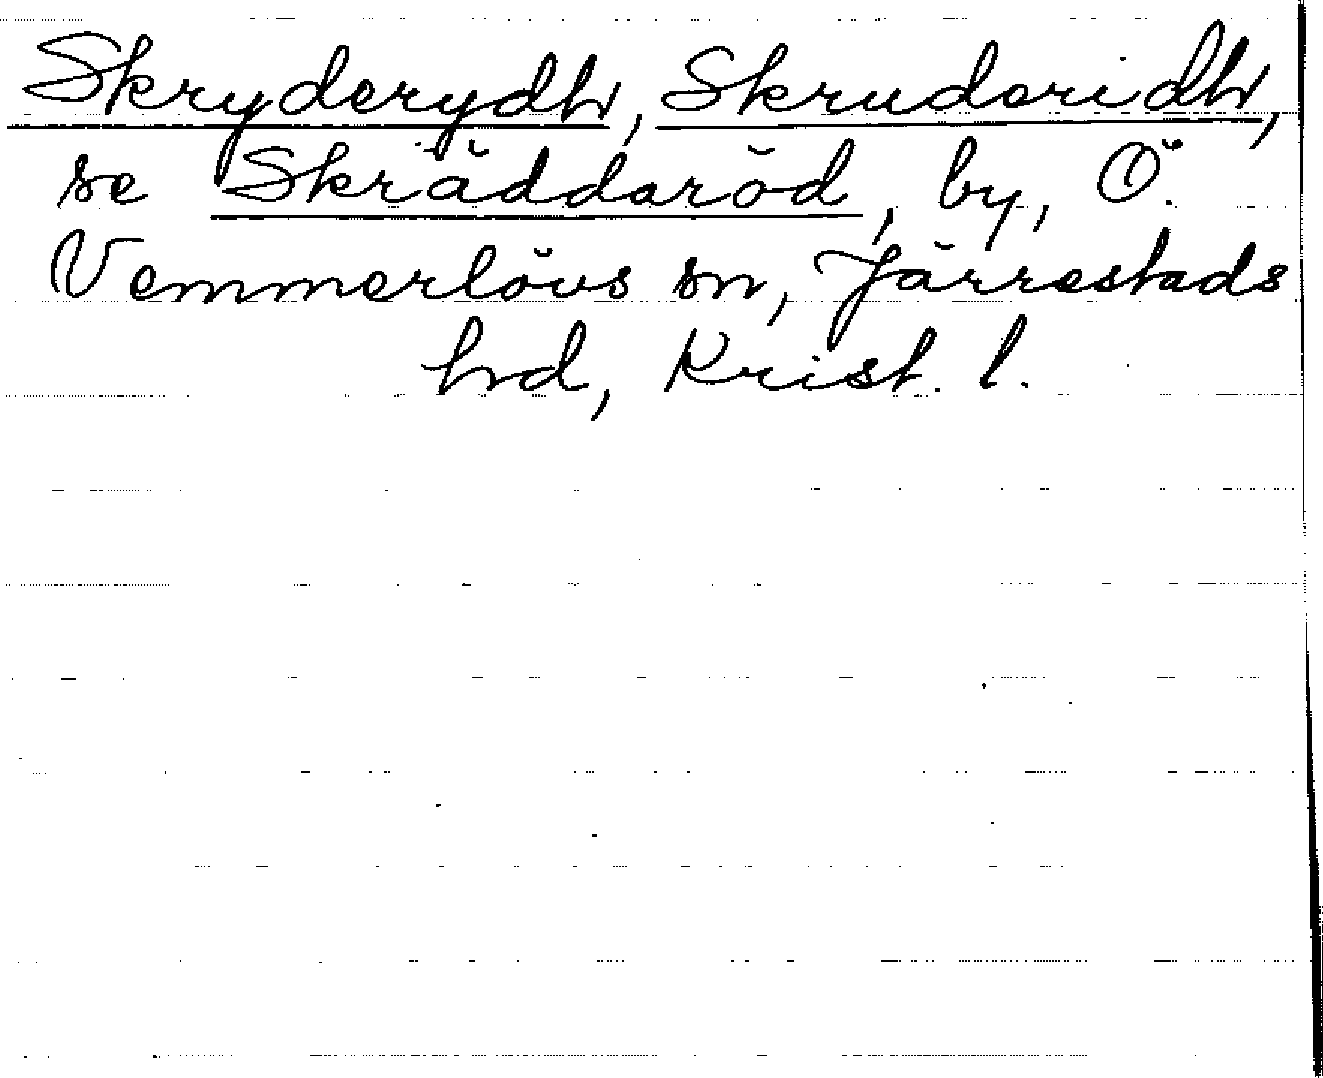 Skryderydh, Skruderidh,
se Skräddaröd, by, Ö.
Vemmerlövs sn, Järrestads
hrd, Krist. l.